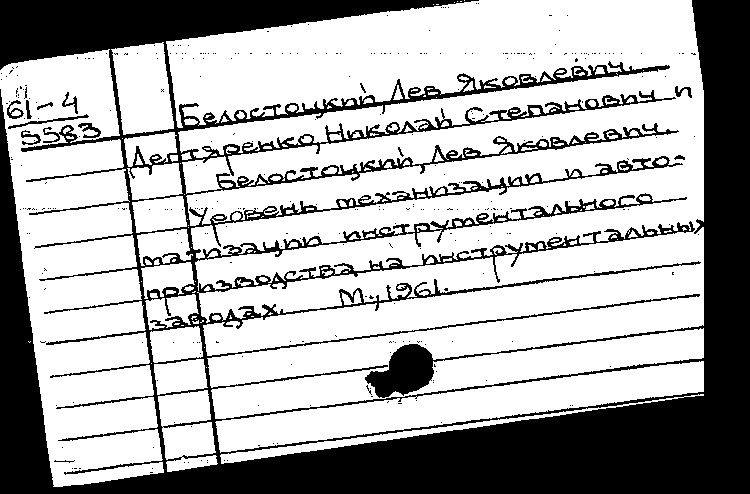 61-4
5583
Белостоцкий, Лев Яковлевич.
Дегтяренко, Николай Степанович и
Белостоцкий, Лев Яковлевич.
Уровень механизации и авто-
матизации инструментального
производства на инструментальных
заводах. М., 1961.